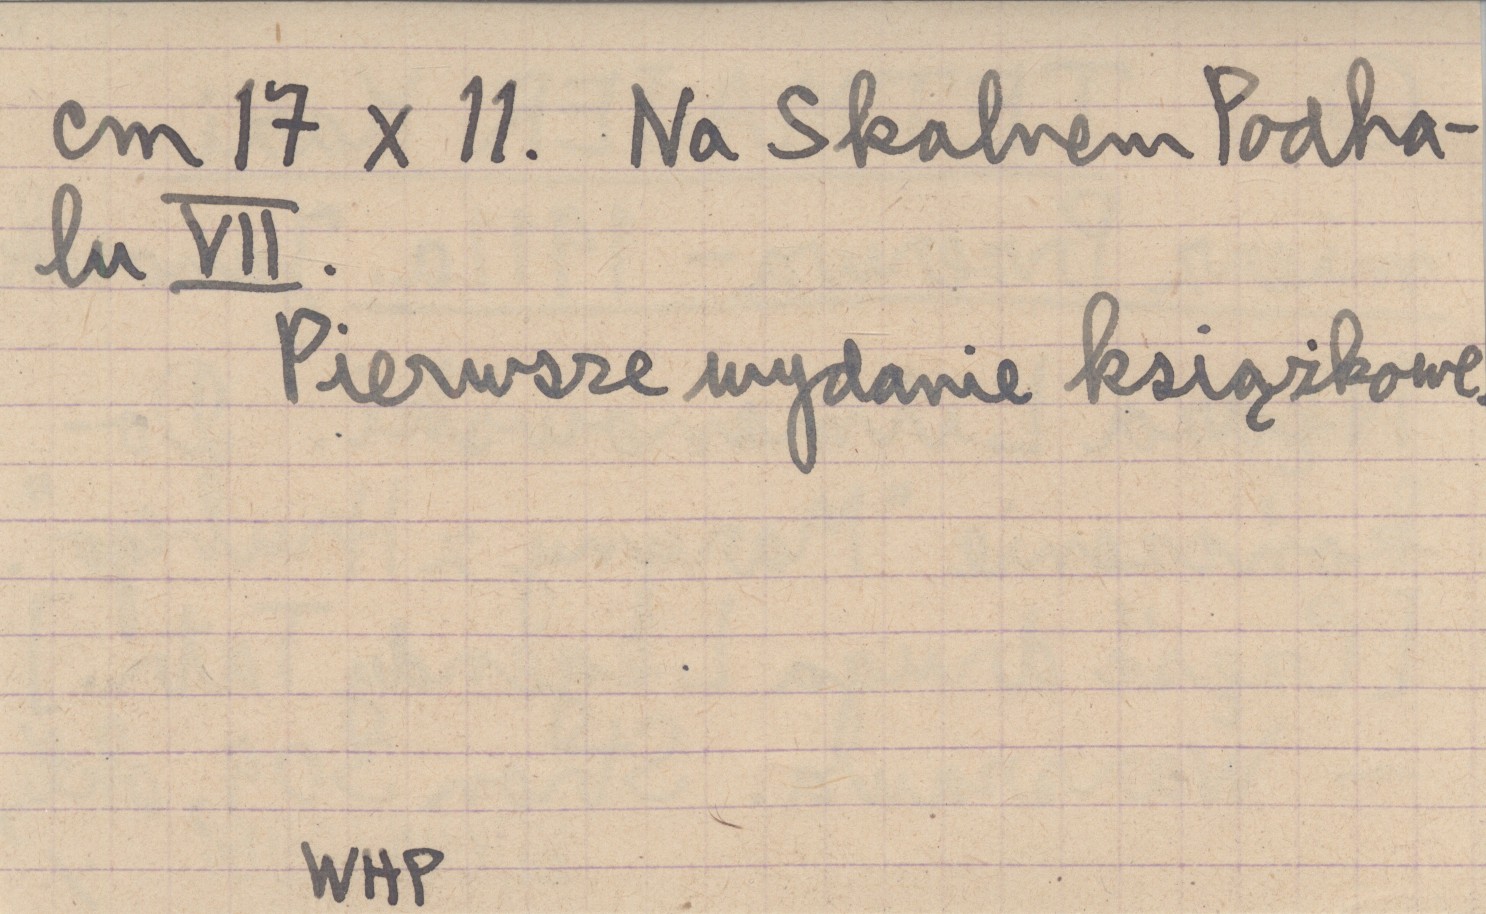 cm 17 x 11. Na Skalnem Podha-
lu VII.
Pierwsze wydanie książkowe.
WHP